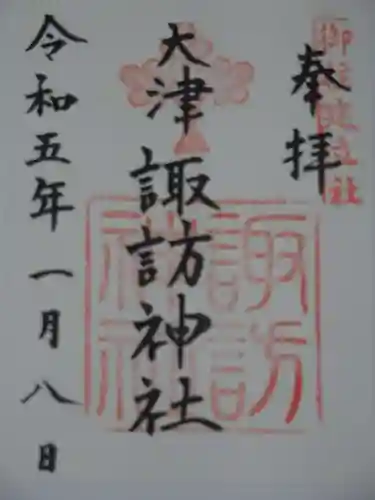 奉拝
大津諏訪神社
諏訪神社
令和五年一月八日